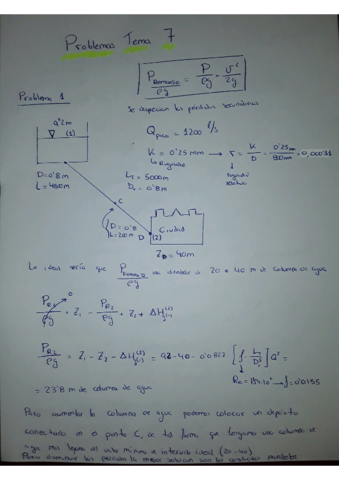 Problemas Tema 7
P Remanso / ρg = P / ρg + v² / 2g
Problema 1
Se desprecian las pérdidas secundarias
Q pico = 1200 l/s
(1)
K = 0'25 mm → r = K / D = 0'25mm / 800mm = 0,00031
↳ Rugosidad
↓ Rugosidad relativa
D=0'8m
L=4800m
L_T = 5000m
D_T = 0'8m
C
D=0'8
L=200m
D
(2)
Ciudad
Z_D = 40m
Lo ideal sería que
20 a 40 m de columna de agua
+ Z₁ - P_R2 / ρg = Z₂ + ΔH
P_R2 / ρg = Z₁ - Z₂ - ΔH = 92-40-0'0827 [f · L / D⁵] Q² =
f=0'0155
= 23'8 m de columna de agua
Para aumentar la columna de agua podemos colocar un depósito
conectado en el punto C, de tal forma que tengamos una columna de
agua mas lejana al valor mínimo del intervalo ideal (20-40)
Para disminuir las pérdidas la mejor solución son las conducciones